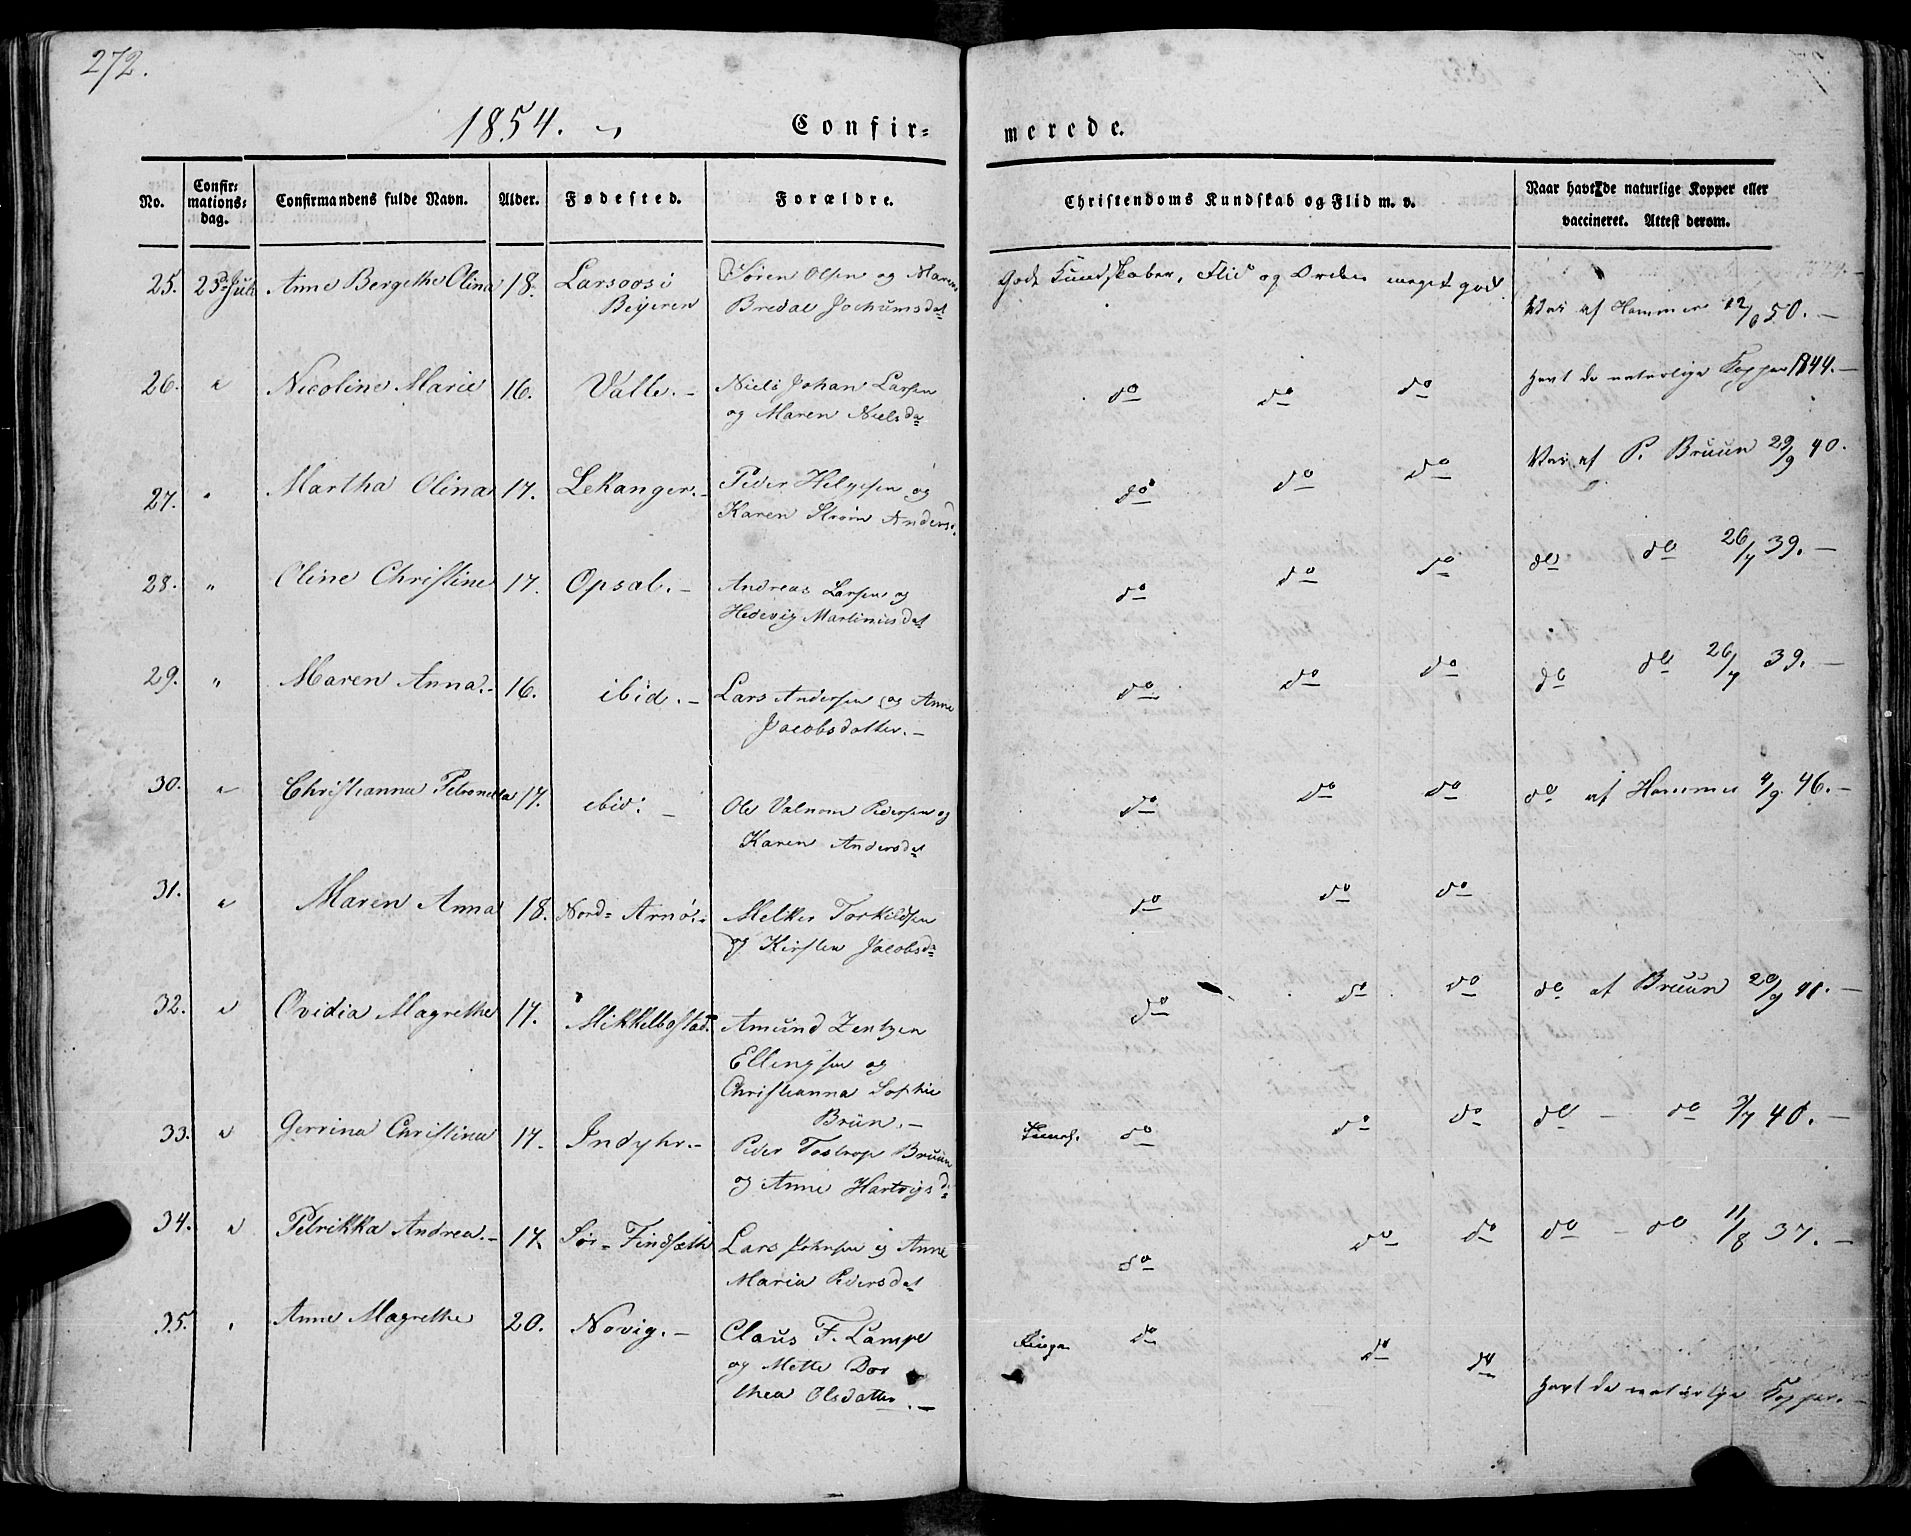 272.
1854.
Confir= merede.
No. Confir= mations= dag. Confirmandens fulde Navn. Alder. Fødested. Forældre. Christendoms Kundskab og Flid m. v. Naar havt de naturlige Kopper eller vaccineret. Attest derom.
25. 23de Juli Anne Bergethe Olina 18. Larsoos i Søren Olsen og Maren gode Kundskaber, Flid og Orden meget god.
Beyeren Bredal Jochumsdat Vac af Hammer 12/6 50.
26. " Nicoline Marie 16. Valle. Niels Johan Larsen do do do havt de naturlige Kopper 1844.
og Maren Nielsda
27. " Martha Olina 17. Lekanger. Peder Helgesen og do do do Vac af P. Bruun 29/9 40.
Karen Strøm Anders
28. " Oline Christine 17. Opsal. Andreas Larsen og do do do do do 26/7 39.
Hedevig Martinusdat
29. " Maren Anna. 16. ibid. Lars Andersen og Anne do do do do do 26/7 39.
Jacobsdatter.
30. " Christianna Petronella 17. ibid: Ole Valnom Pedersen og do do do do af Hammer 4/9 46.
Karen Andersdat
31. " Maren Anna 18. Nord=Arnø. Melker Torkildsen do do do
og Kirsten Jacobsd
32. " Ovidia Magrethe 17. Mikkelbostad Amund Zentzen do do do do af Bruun 20/9 41.
Ellingsen og
Christianna Sophie
Brün.
33. " Gerrina Christina 17. Indyhr. Peder Tostrop Bruun do do do do do 3/7 40.
og Anne Hartvigsd
34. " Petrikka Andrea. 17. Sør=Findsæth Lars Johnsen og Anne do do do do do 11/8 37.
Maria Pedersdat
35. " Anne Magrethe 20. Novig. Claus F. Lampe do do do havt de naturlige Kopper.
og Mette Dor
thea Olsdatter.